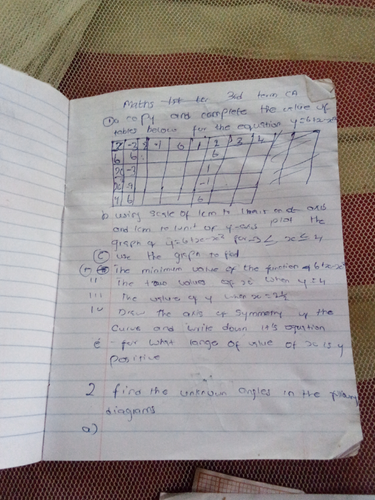 Maths 1st ter 3rd term CA
① a copy and complete the value of
tables below for the equation y=6+x-x²
x -3 2 -1 0 1 2 3 4
6 6 6
x -3 1
x² -9 -1
y 6 6
b using scale of 1cm to 1 unit x- axis
and 1cm to 1 unit of y-axis plot the
graph of y=6+x-x² for -3 ≤ x ≤ 4
© use the graph to find
The minimum value of the function 6+x-x²
ii The two values of x when y=4
iii The values of y when x=
iv Draw the axis of symmetry of the
curve and write down its equation
e - for what range of value of x is y
positive
2 find the unknown angles in the
diagrams
a)